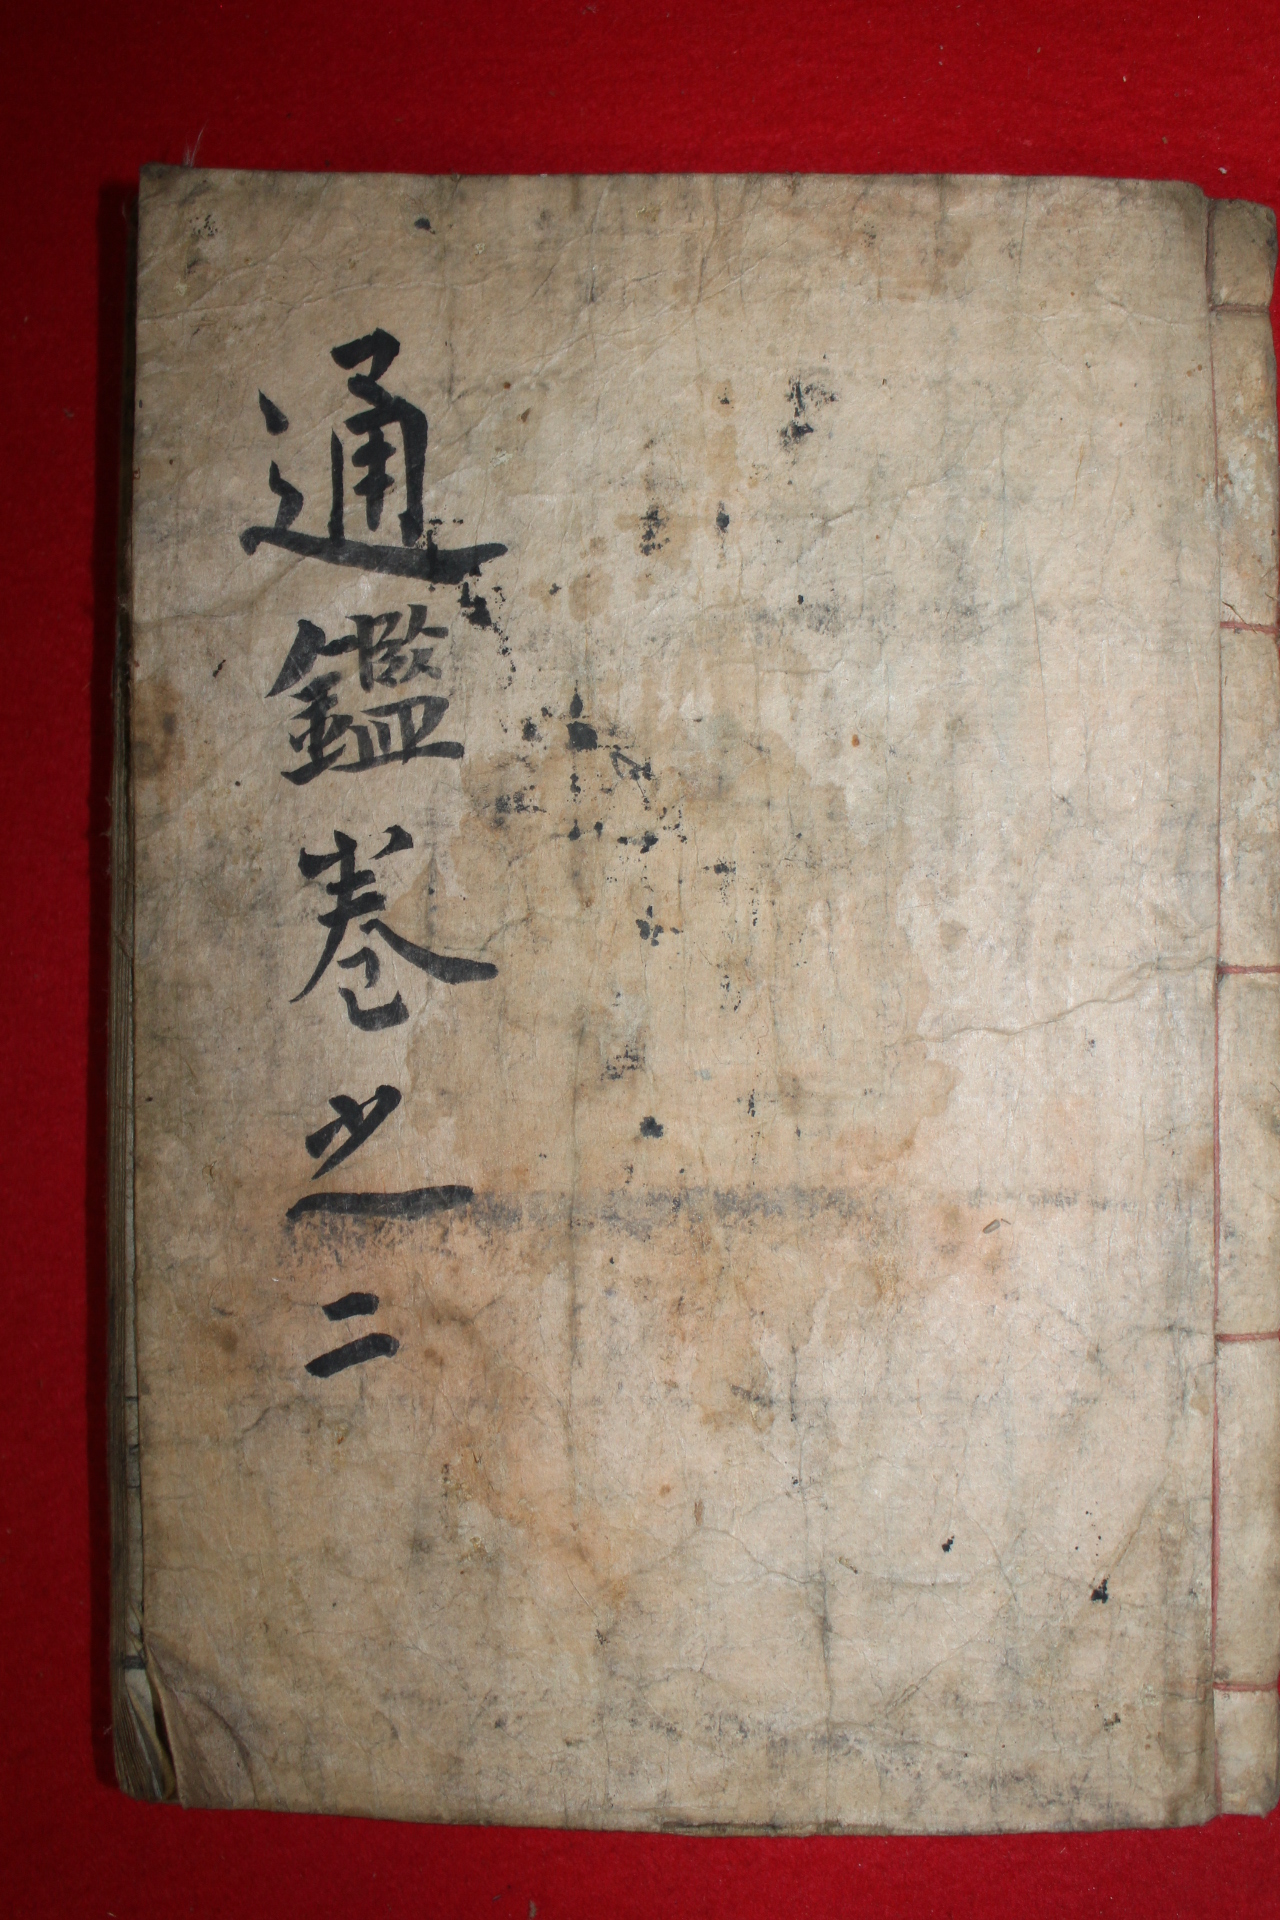 通鑑卷之二